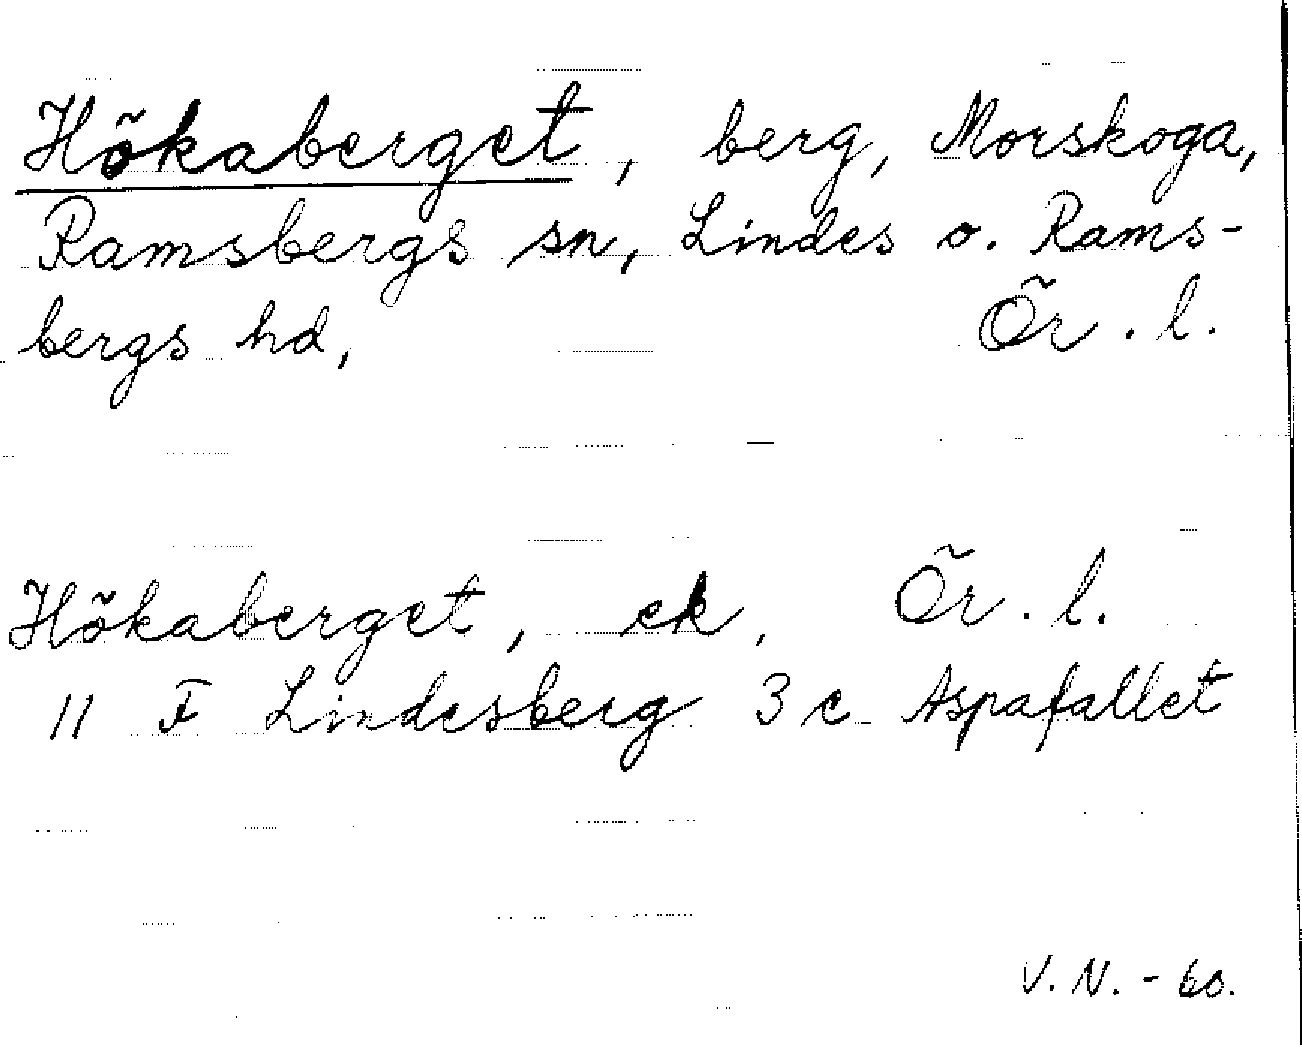 Hökaberget, berg, Morskoga,
Ramsbergs sn, Lindes o. Rams-
bergs hd, Ör. l.
Hökaberget, ek, Ör. l.
11 F Lindesberg 3 c Aspafallet
V. N. - 60.